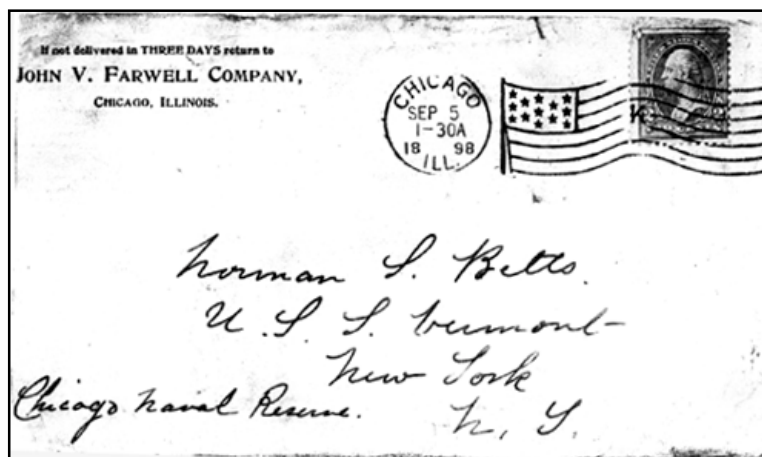 If not delivered in THREE DAYS return to
JOHN V. FARWELL COMPANY,
CHICAGO, ILLINOIS.
CHICAGO
SEP 5
1-30A
18 98
ILL.
Norman S. Betts.
U. S. S. Vermont
New York
Chicago Naval Reserve.
N. Y.